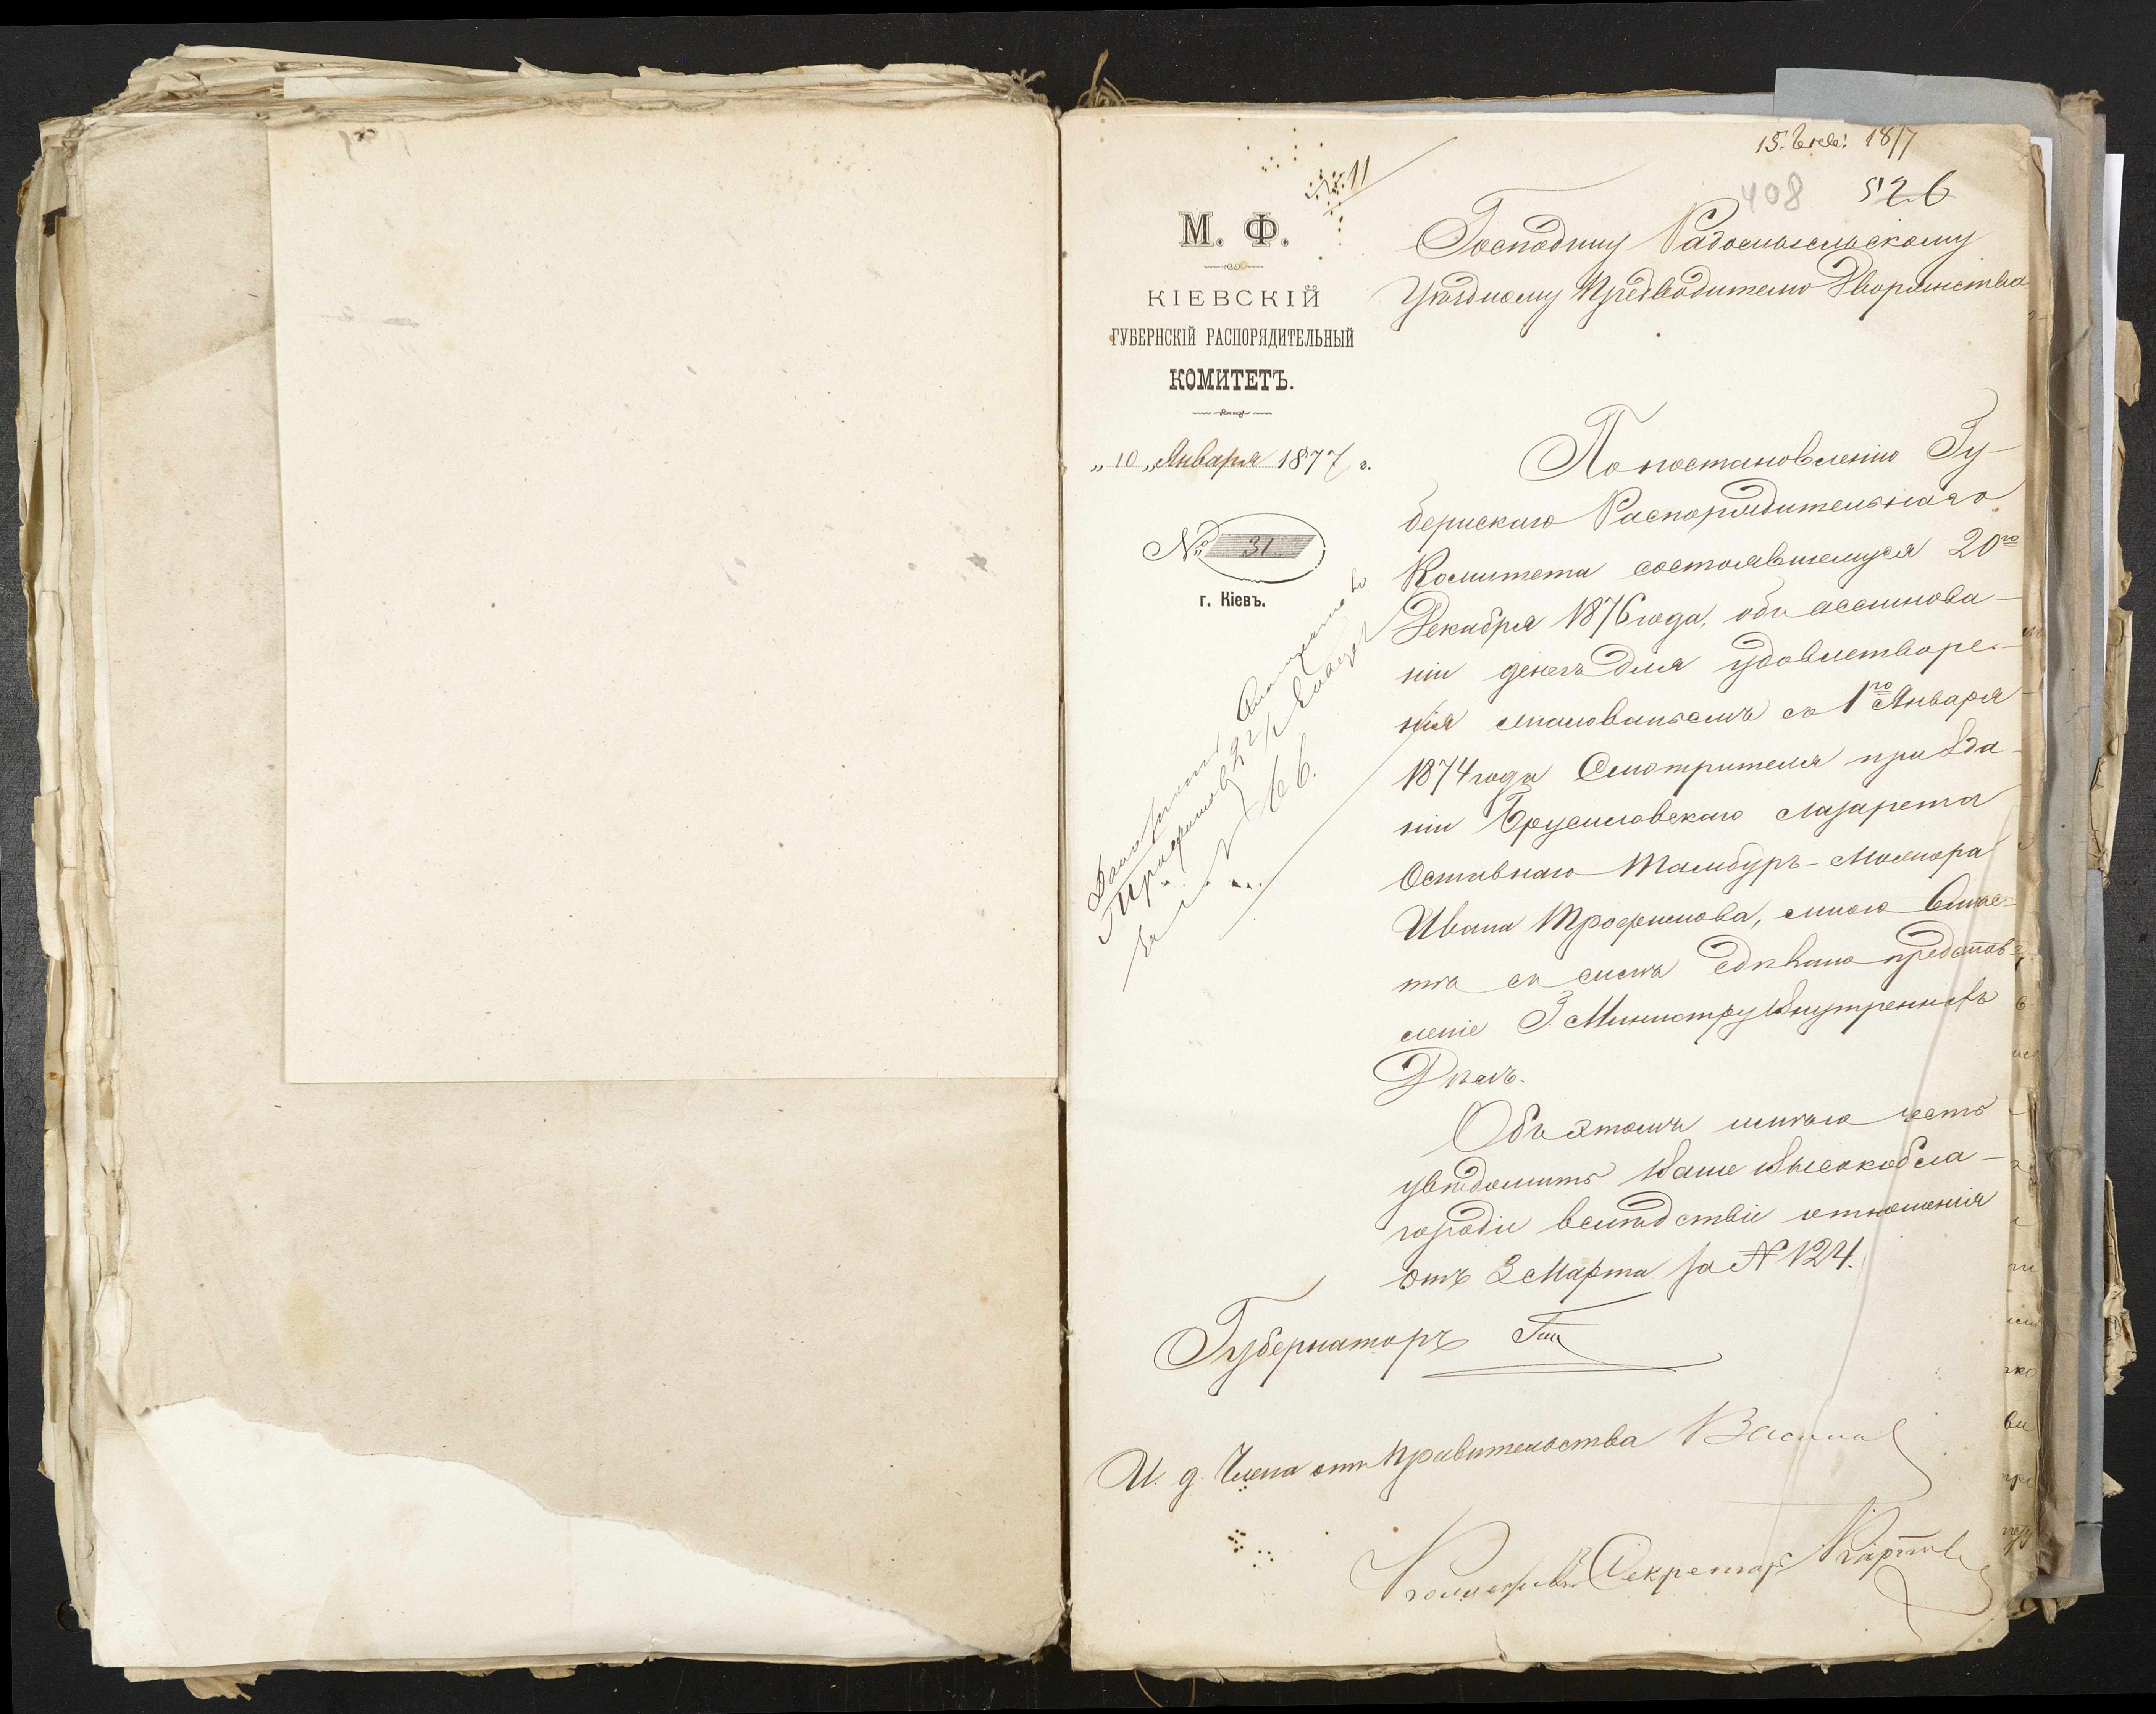 15. Генв: 1877
№ 11
408 526
М. Ф.
КІЕВСКІЙ
ГУБЕРНСКІЙ РАСПОРЯДИТЕЛЬНЫЙ
КОМИТЕТЪ.
„10„ Января 1877 г.
№ 31
г. Кіевъ.
Господину Радомысльскому
Уѣздному Предводителю Дворянства
По постановленію Гу-
бернскаго Распорядительнаго
Комитета состоявшемуся 20го
Декабря 1876 года, объ ассигнова-
ніи денегъ для удовлетворе-
нія жалованьемъ съ 1го Января
1874 года Смотрителя при зда-
ніи Брусиловскаго лазарета
Оставнаго Тамбуръ-Мажора
Ивана Трофимова, мною вмѣс-
тѣ съ симъ сдѣлано представ-
леніе Г. Министру Внутреннихъ
Дѣлъ.
Объ этомъ имѣю честь
увѣдомить Ваше Высокобла-
городіе вслѣдствіе отношенія
отъ 3 Марта за № 124.
Губернаторъ
И. д. Члена отъ Правительства
Секретарь